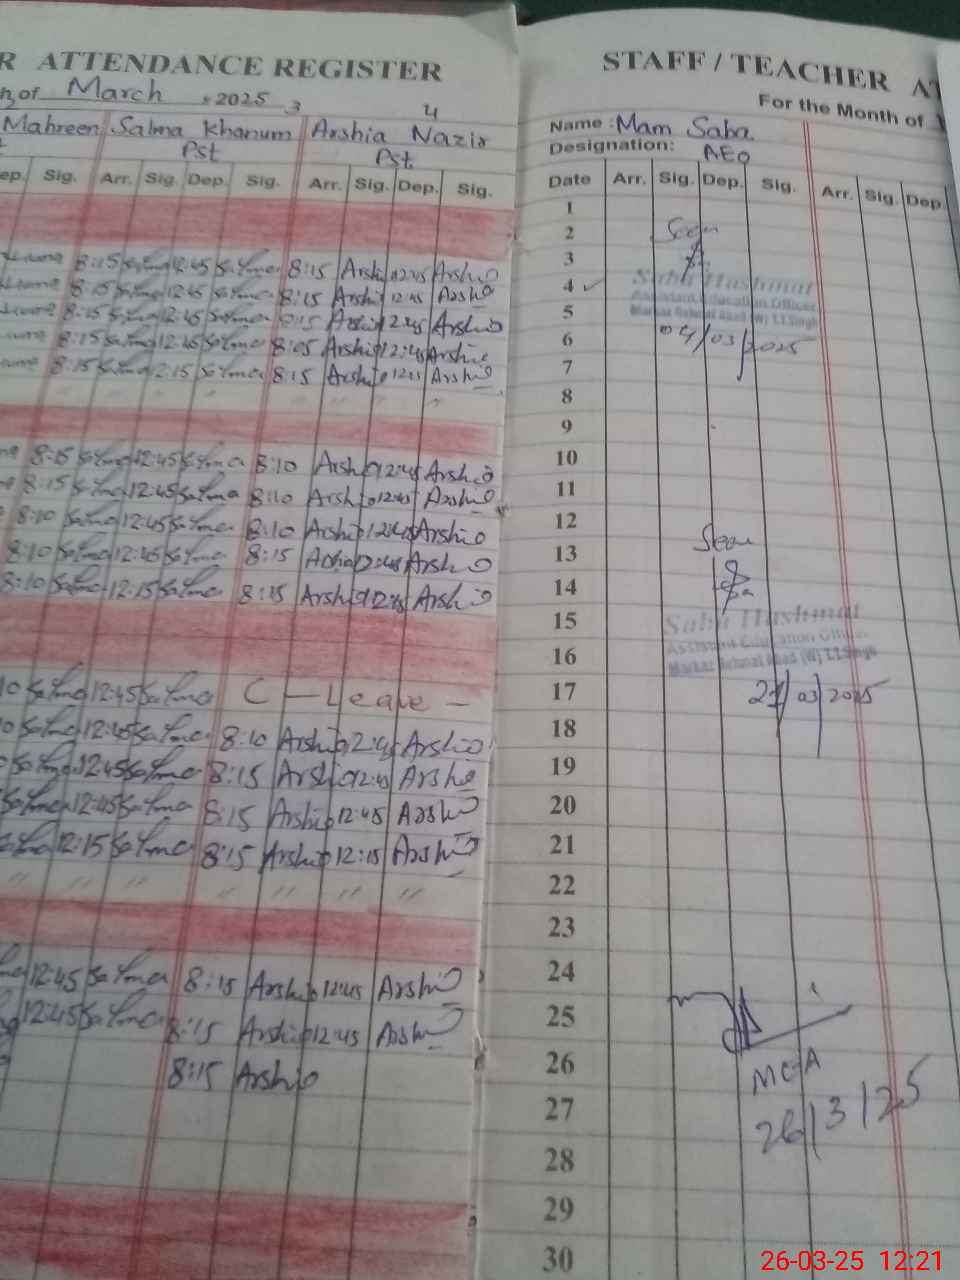 R ATTENDANCE REGISTER
of March , 2025
3 4
Mahreen Salma Khanum Arshia Nazir
Pst Pst
ep. Sig. Arr. Sig. Dep. Sig. Arr. Sig. Dep. Sig.
8:15 Salma 12:45 Salma 8:15 Arshia 12:45 Arshia
8:15 Salma 12:45 Salma 8:15 Arshia 12:45 Arshia
8:15 Salma 12:45 Salma 8:15 Arshia 12:45 Arshia
8:15 Salma 12:45 Salma 8:05 Arshia 12:45 Arshia
8:15 Salma 12:15 Salma 8:15 Arshia Arshia
8:15 Salma 12:45 Salma 8:10 Arshia 12:45 Arshia
8:15 Salma 12:45 Salma 8:10 Arshia 12:45 Arshia
8:10 Salma 12:45 Salma 8:10 Arshia 12:45 Arshia
8:10 Salma 12:45 Salma 8:15 Arshia 12:45 Arshia
8:10 Salma 12:15 Salma 8:15 Arshia Arshia
10 Salma 12:45 Salma C - Leave -
Salma 12:45 Salma 8:10 Arshia 12:45 Arshia
Salma 12:45 Salma 8:15 Arshia 12:45 Arshia
Salma 12:45 Salma 8:15 Arshia 12:45 Arshia
Salma 12:15 Salma 8:15 Arshia 12:15 Arshia
12:45 Salma 8:15 Arshia 12:45 Arshia
12:45 Salma 8:15 Arshia 12:45 Arshia
8:15 Arshia
STAFF / TEACHER AT
For the Month of
Name : Mam Saba
Designation: AEO
Date Arr. Sig. Dep. Sig. Arr. Sig. Dep.
1
2 Seen
3
4 ✓ Saba Hashmat
5 Assistant Education Officer
Markaz Rehmat Abad (W) T.T.Singh
6 04/03/2025
7
8
9
10
11
12
13 Seen
14
15 Saba Hashmat
16 Assistant Education Officer
Markaz Rehmat Abad (W) T.T.Singh
17 21/03/2025
18
19
20
21
22
23
24
25
26 MEA
27 26/3/25
28
29
30
26-03-25 12:21